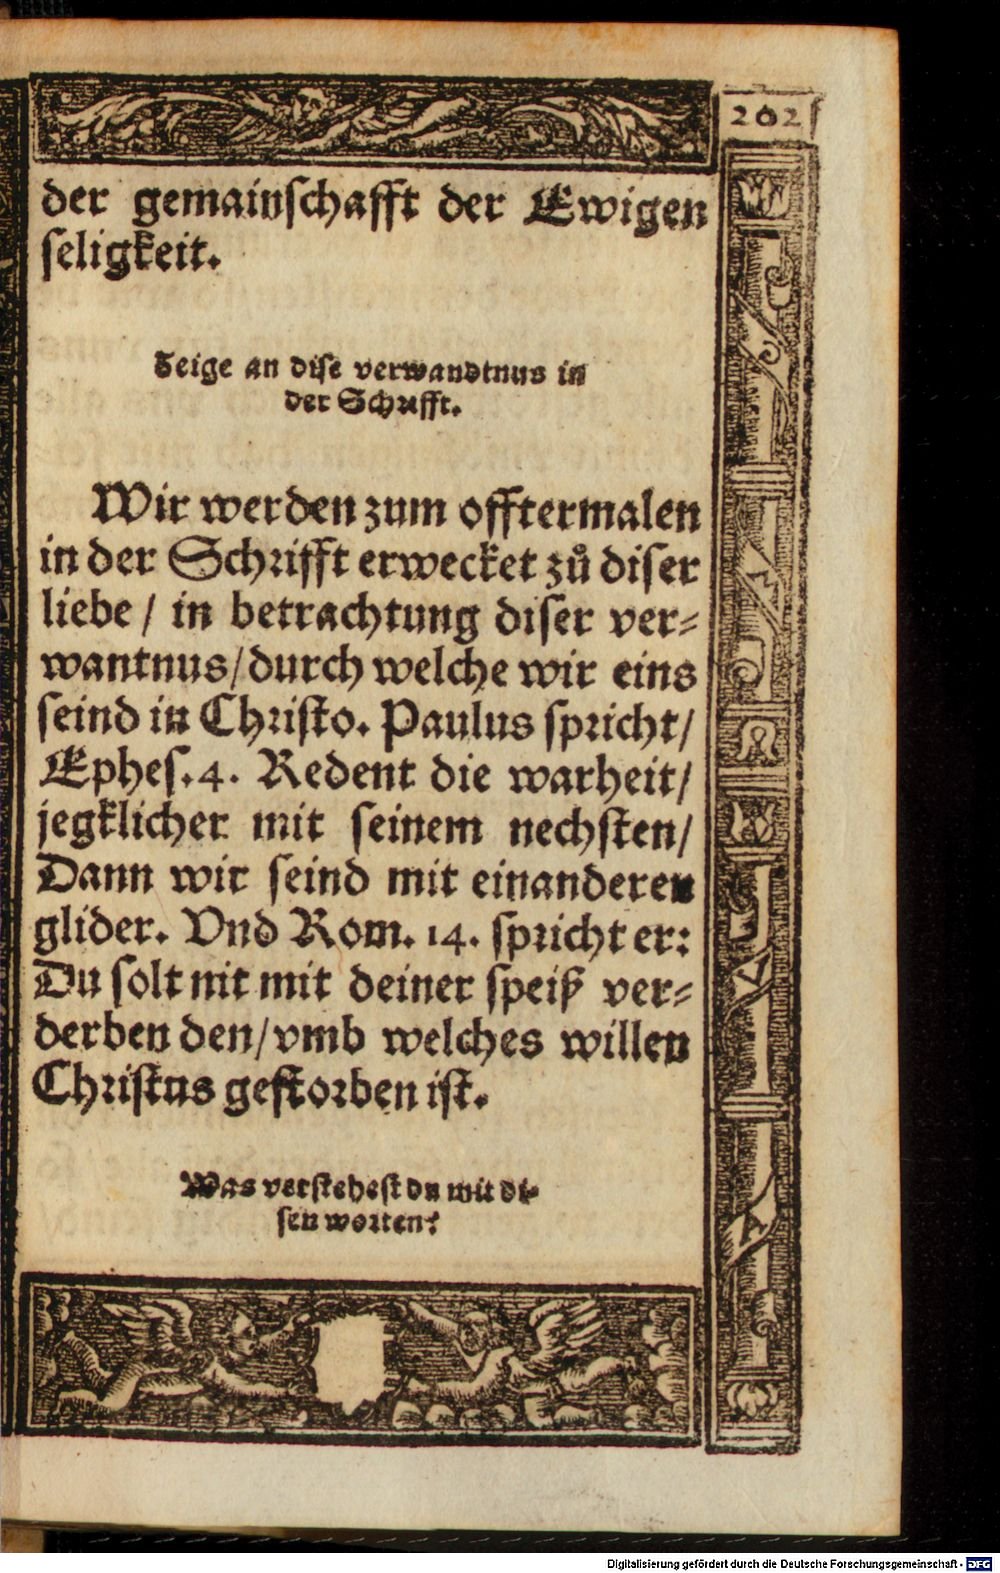 202
der gemainschafft der Ewigen
seligkeit.
Zeige an dise verwandtnus in
der Schrifft.
Wir werden zum offtermalen
in der Schrifft erwecket zů diser
liebe / in betrachtung diser ver-
wantnus / durch welche wir eins
seind in Christo. Paulus spricht /
Ephes. 4. Redent die warheit /
jegklicher mit seinem nechsten /
Dann wir seind mit einanderen
glider. Vnd Rom. 14. spricht er:
Du solt nit mit deiner speiß ver-
derben den / vmb welches willen
Christus gestorben ist.
Was verstehest du mit di-
sen worten?
Digitalisierung gefördert durch die Deutsche Forschungsgemeinschaft - DFG